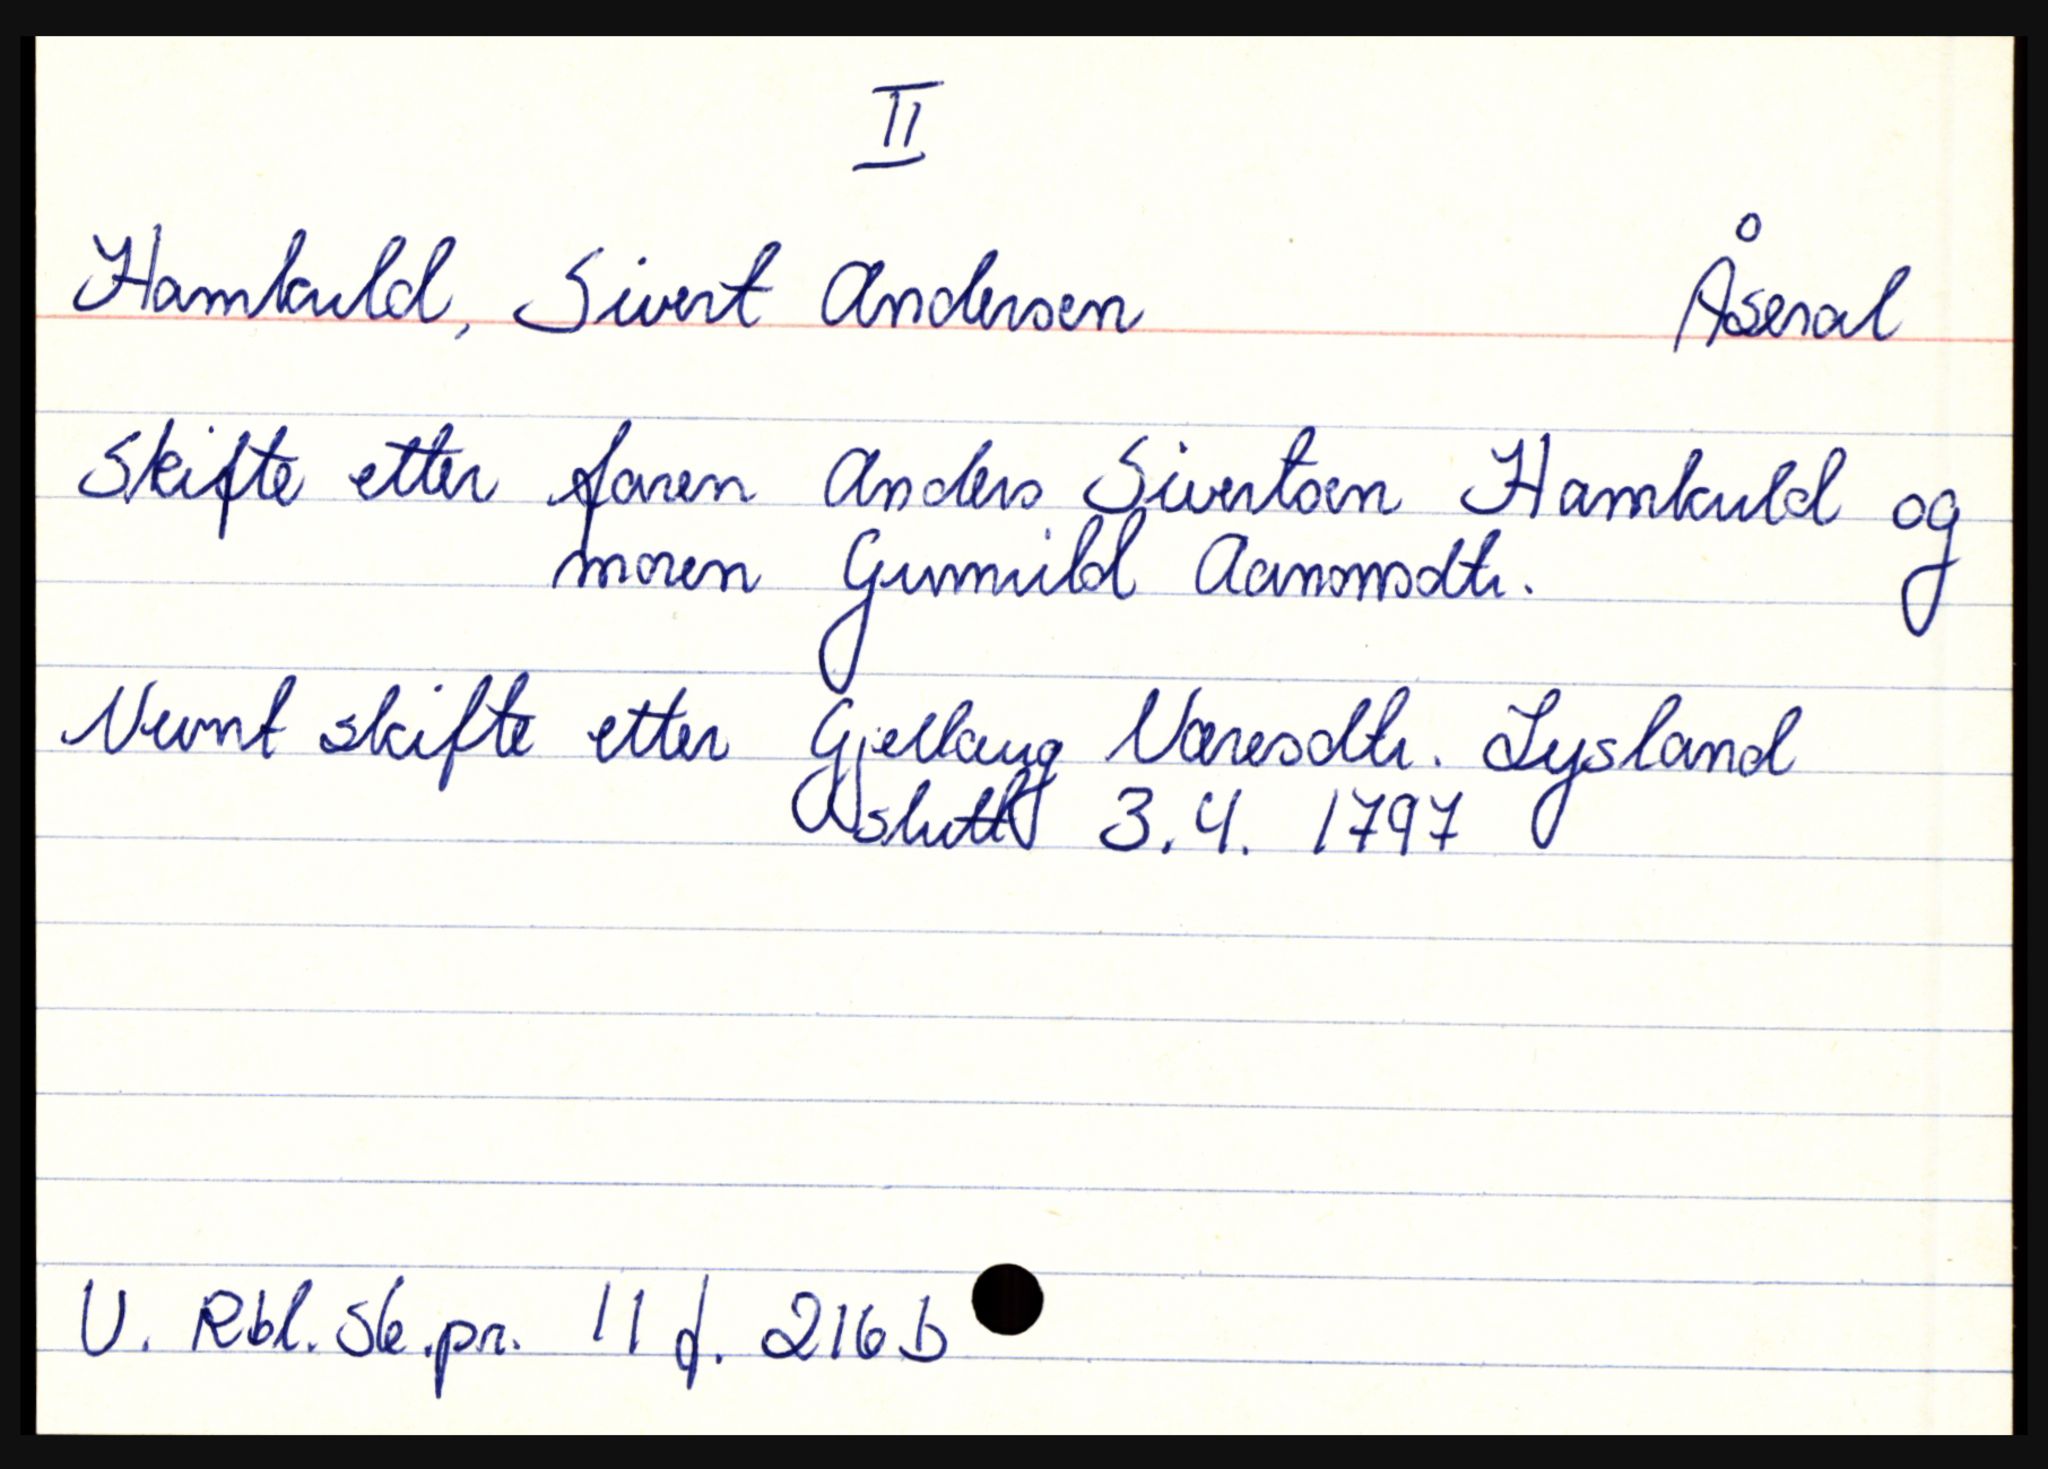 II
Hamkuld, Sivert Andersen Åseral
Skifte etter faren Anders Sivertsen Hamkuld og
moren Gunnild Aanonsdtr.
Nevnt skifte etter Gjellaug Varesdtr. Lysland
slutt 3.4. 1797
V. Rbl. Sk.pr. 11 f. 216 b